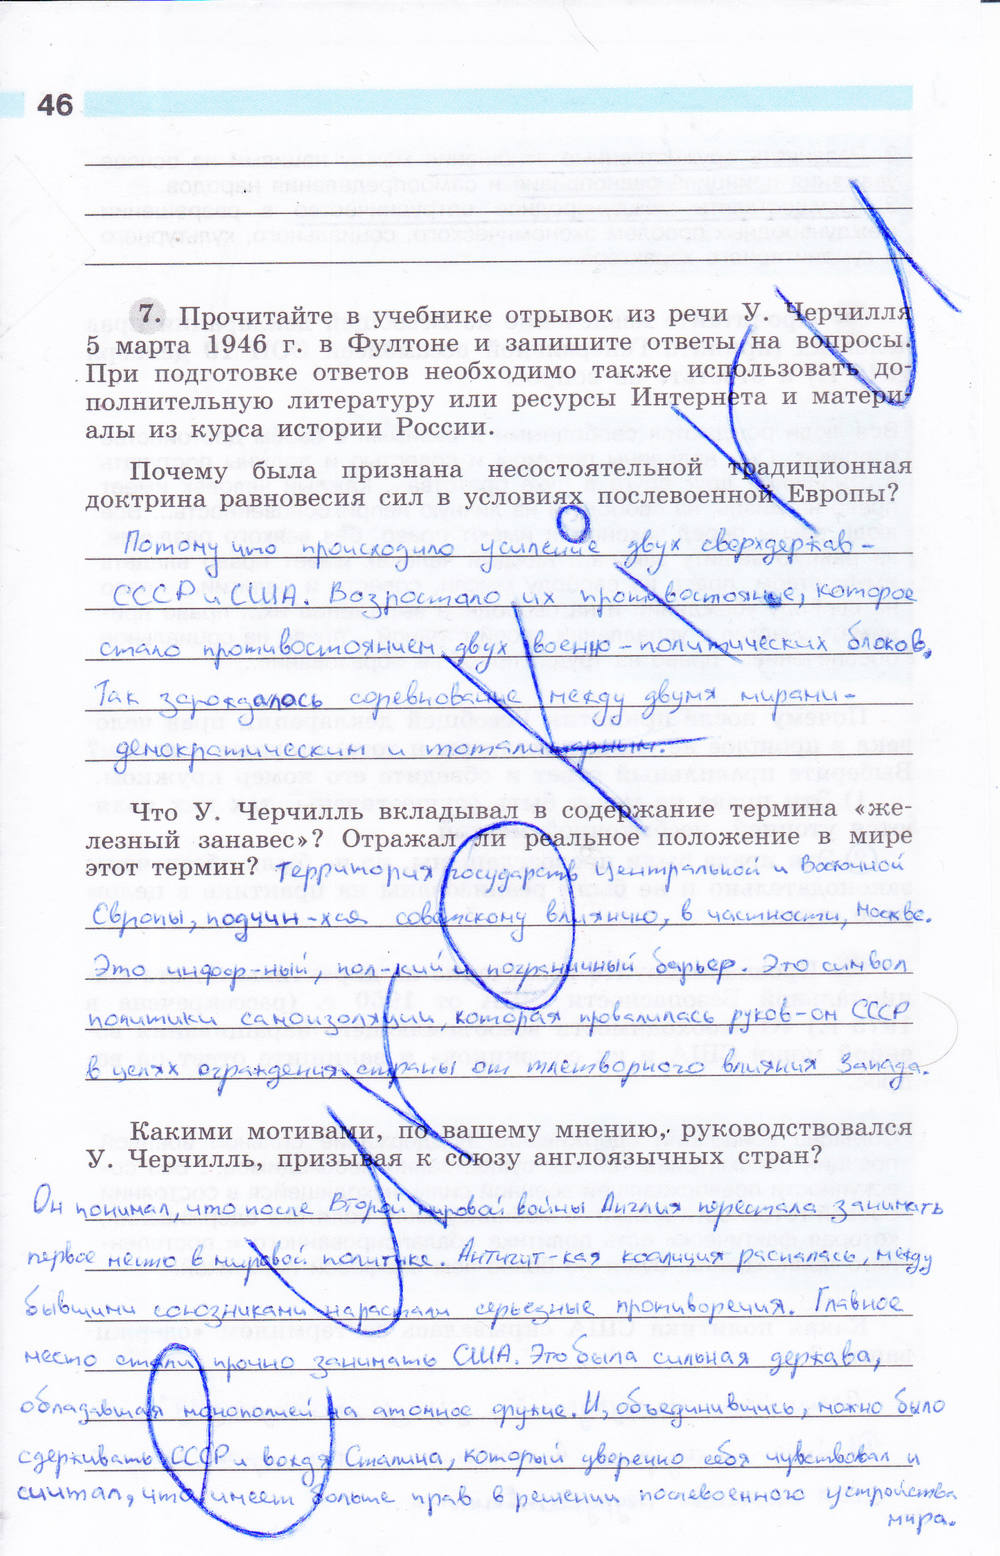 46
7. Прочитайте в учебнике отрывок из речи У. Черчилля
5 марта 1946 г. в Фултоне и запишите ответы на вопросы.
При подготовке ответов необходимо также использовать до-
полнительную литературу или ресурсы Интернета и матери-
алы из курса истории России.
Почему была признана несостоятельной традиционная
доктрина равновесия сил в условиях послевоенной Европы?
Потому что происходило усиление двух сверхдержав -
СССР и США. Возростало их противостояние, которое
стало противостоянием двух военно-политических блоков.
Так зарождалось соревнование между двумя мирами-
демократическим и тоталитарным.
Что У. Черчилль вкладывал в содержание термина «же-
лезный занавес»? Отражал ли реальное положение в мире
этот термин? Территория государств Центральной и Восточной
Европы, подчин-хся советскому влиянию, в частности, Москве.
Это информ-ный, пол-кий и пограничный барьер. Это символ
политики самоизоляции, которая провалилась руков-ом СССР
в целях ограждения страны от тлетворного влияния Запада.
Какими мотивами, по вашему мнению, руководствовался
У. Черчилль, призывая к союзу англоязычных стран?
Он понимал, что после Второй мировой войны Англия перестала занимать
первое место в мировой политике. Антигит-кая коалиция распалась, между
бывшими союзниками нарастали серьезные противоречия. Главное
место стали прочно занимать США. Это была сильная держава,
обладавшая монополией на атомное оружие. И, объединившись, можно было
сдерживать СССР и вождя Сталина, который уверенно себя чувствовал и
считал, что имеет больше прав в решении послевоенного устройства
мира.